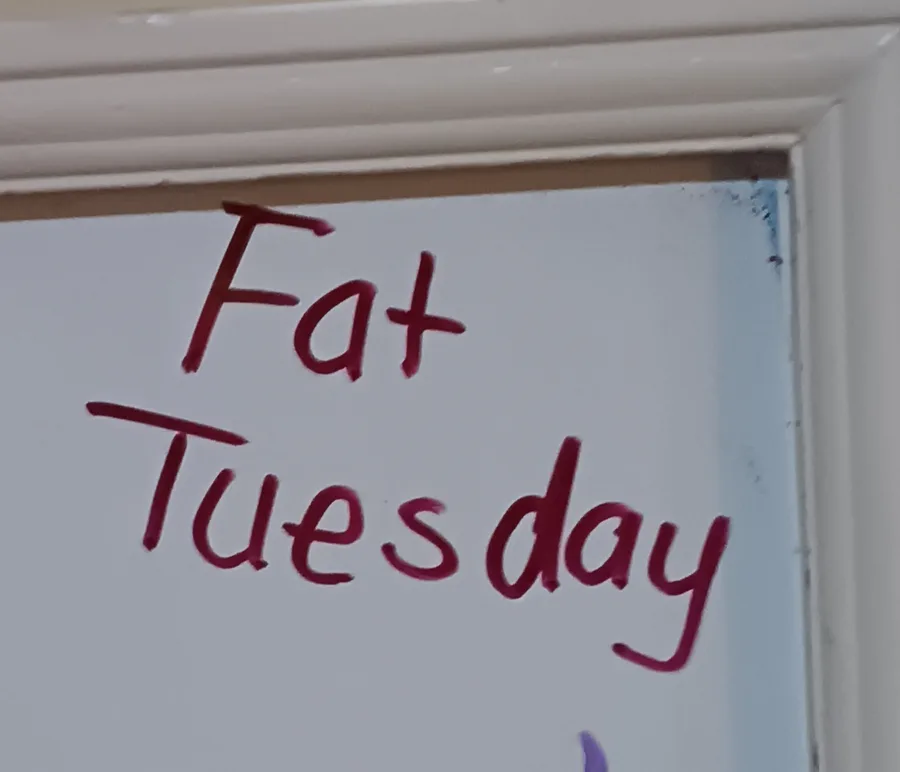 Fat
Tuesday